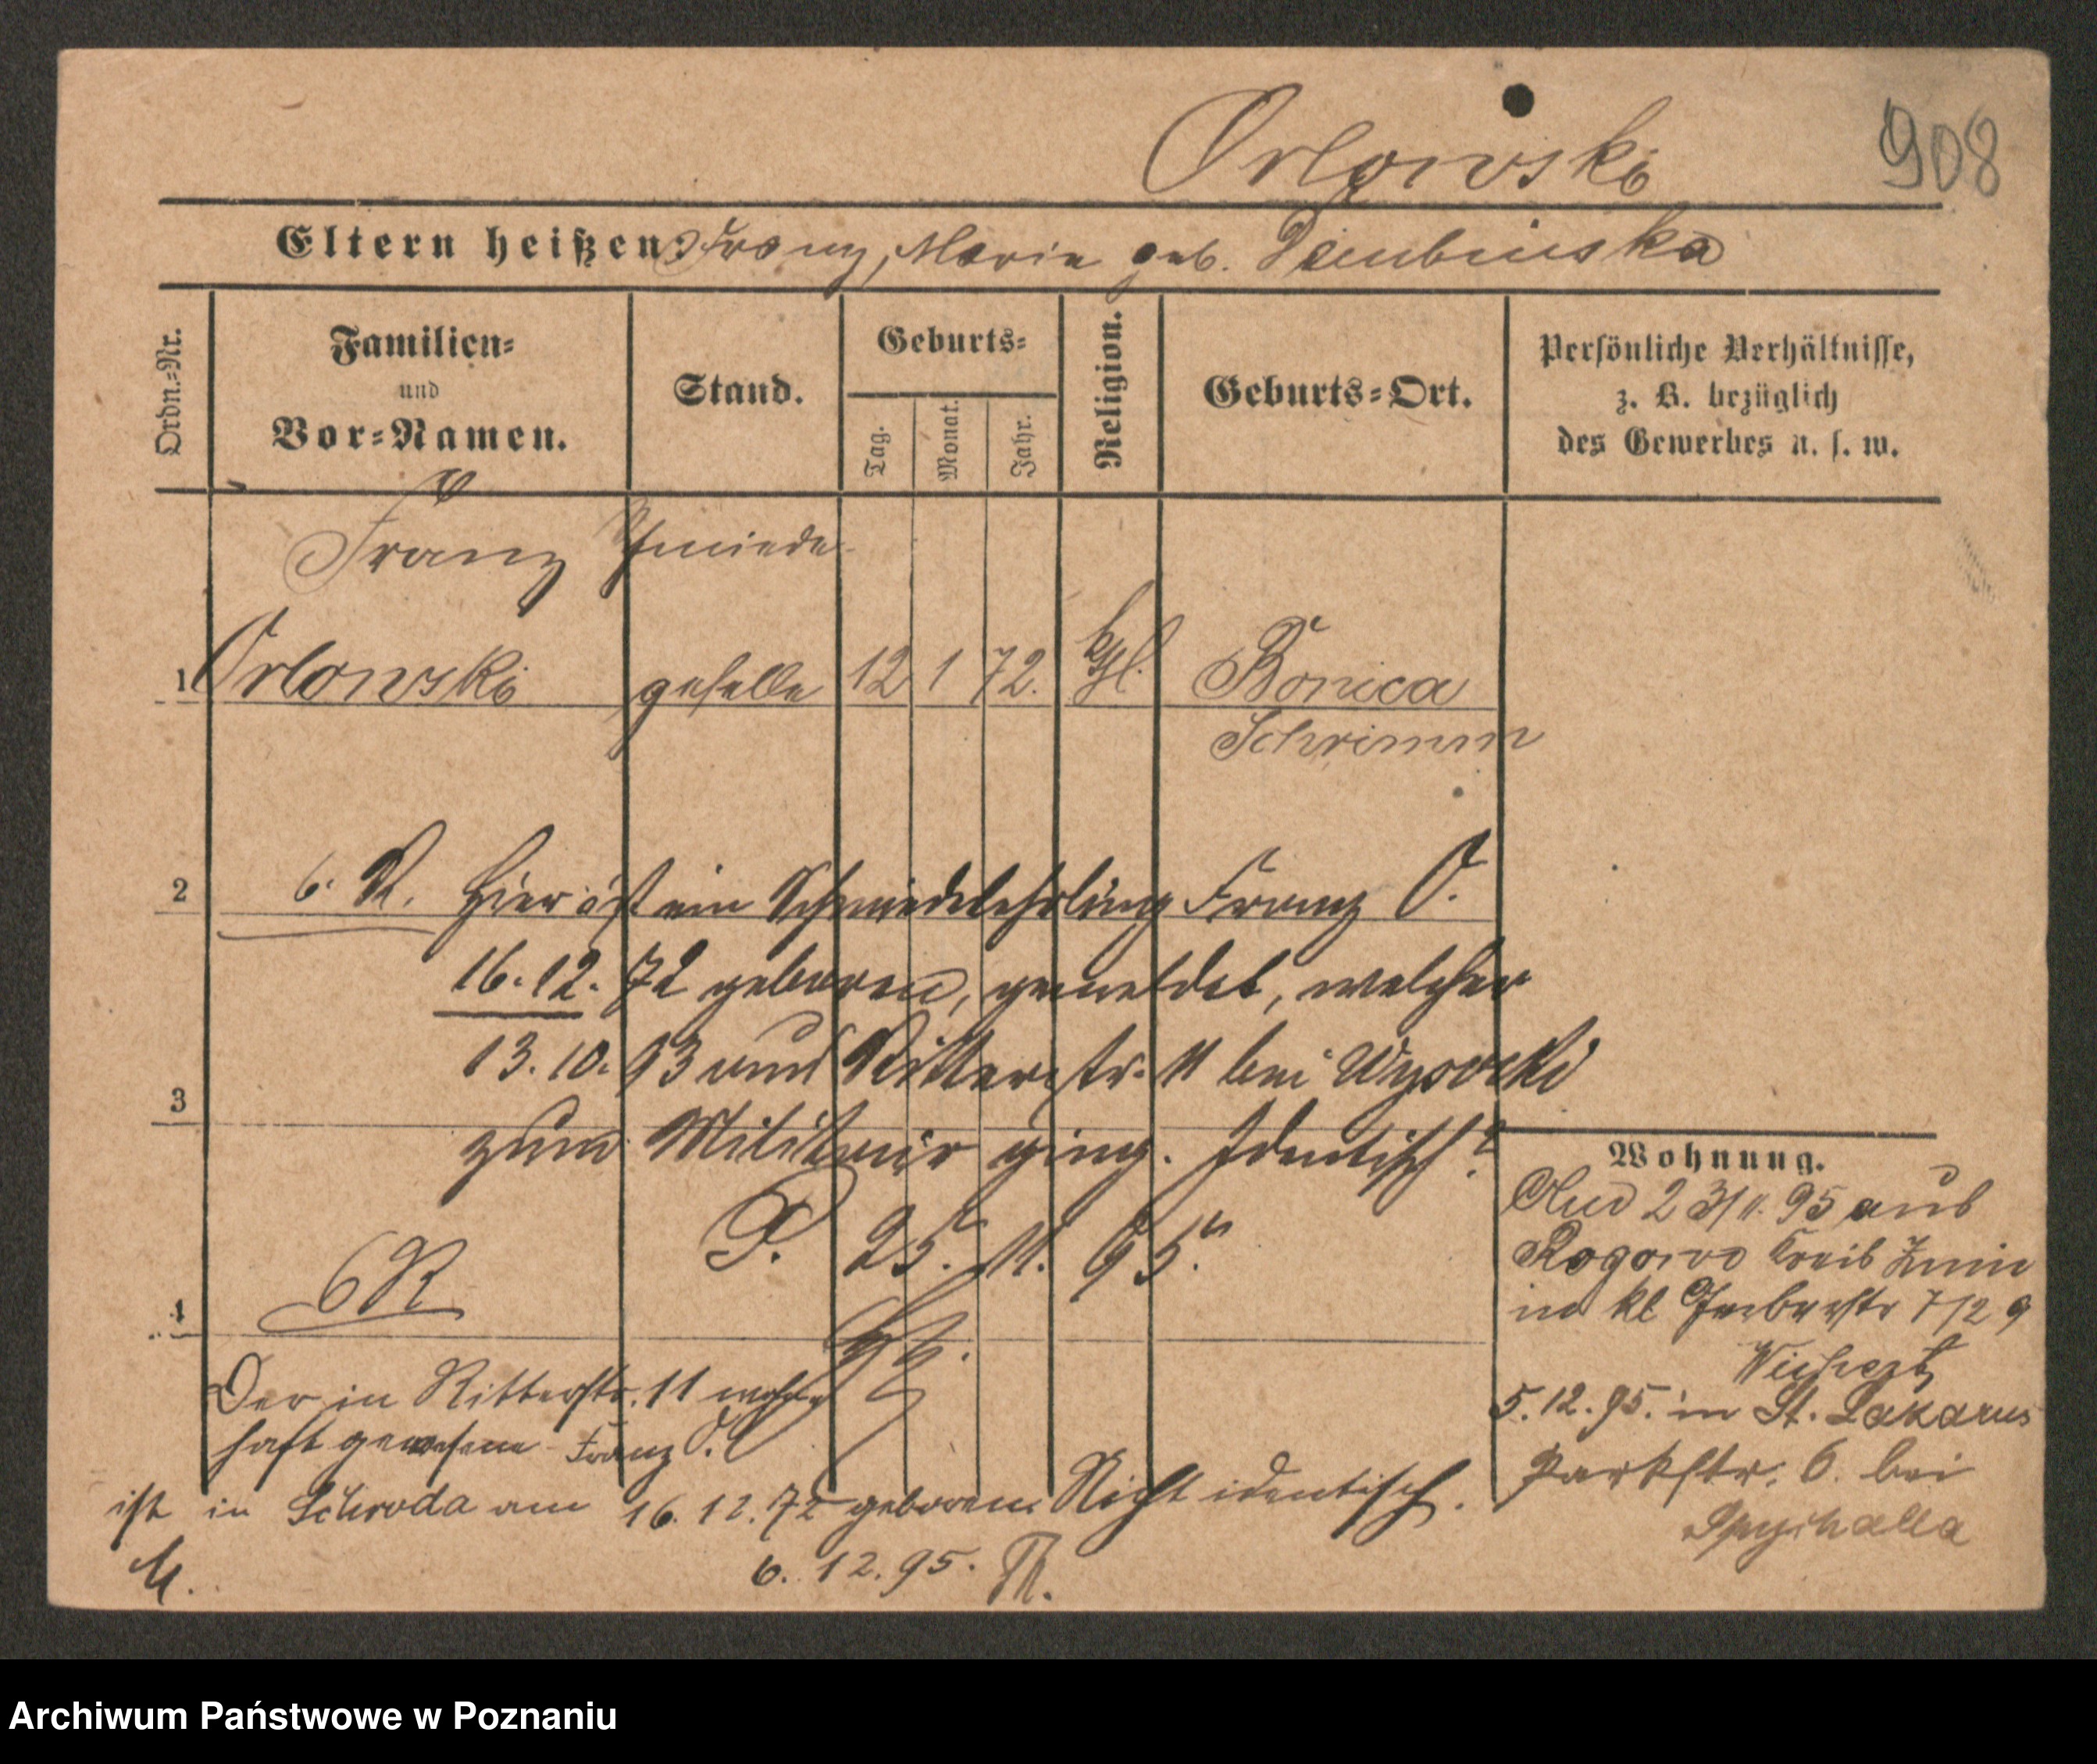 Orlowski
908
Eltern heißen: Franz, Marie geb. Dembinska
Ordn.-Nr.
Familien-
und
Vor-Namen.
Stand.
Geburts-
Tag.
Monat.
Jahr.
Religion.
Geburts-Ort.
Persönliche Verhältnisse,
z. B. bezüglich
des Gewerbes u. s. w.
Franz Schmiede-
1 Orlowski geselle 12 1 72. kthl. Bonica
Schrimm
2 6. R. Hier ist ein Schmiedelehrling Franz O.
16.12.72 geboren, gemeldet, welcher
13.10.93 aus Ritterstr. 11 bei Wysocki
3
zum Militair ging. Identisch?
P. 25. 11. 95.
6 R
4
Der in Ritterstr. 11 wohn
haft gewesene Franz O.
ist in Schroda am 16.12.72 geboren. Nicht identisch.
6. 12. 95. Th.
Wohnung.
23/11. 95 aus
Rogowo Kreis Znin
in kl Gerberstr 7/2 9
5.12.95. in St. Lazarus
Parkstr. 6. bei
Spychalla
Archiwum Państwowe w Poznaniu